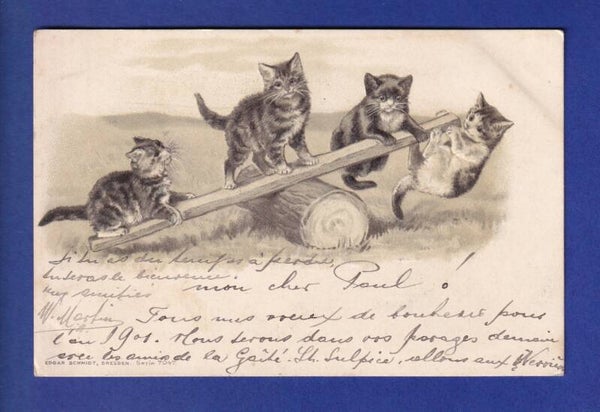 Si tu as du temps à perdre
tu seras le bienvenu.
mon cher Paul !
mes amitiés
M. Martin
Tous mes vœux de bonheur pour
l'an 1901. Nous serons dans vos parages demain
avec les amis de la Gaîté. St. Sulpice, allons aux
EDGAR SCHMIDT, DRESDEN. Serie 7047.